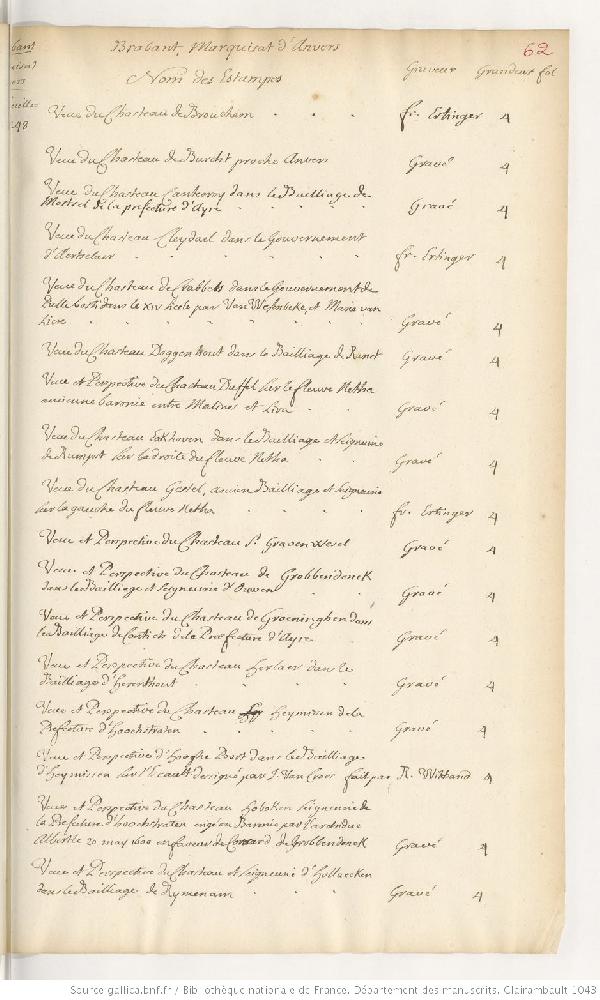 Brabant Marquisat d'Anvers 62
Nom des Estampes Graveur Grandeur fol
Veue du Chasteau de Brouchem fr. Ertinger 4
Veue du Chasteau de Burcht proche Anvers Gravé 4
Veue du Chasteau Cantecroy dans le Bailliage de
Mortsel de la prefecture d'Ayre Gravé 4
Veue du Chasteau Cleydael dans le Gouvernement
d'Aertselaer fr. Ertinger 4
Veue du Chasteau de Crabbels dans le Gouvernement de
Dulle basti dans le XIV siecle par Van Wesenbeke, et Maria van
Liere Gravé 4
Veue du Chasteau Doggenhout dans le Bailliage de Ranst Gravé 4
Veue et Perspective du Chasteau Duffel sur le fleuve Netha
ancienne baronie entre Malines et Gravé 4
Veue du Chasteau Eekhoven dans le Bailliage et Seigneurie
de Rumpst sur la droite du fleuve Netha Gravé 4
Veue du Chasteau Gestel, ancien Bailliage et Seigneurie
sur la gauche du fleuve Netha fr. Ertinger 4
Veue et Perspective du Chasteau St Graven Wesel Gravé 4
Veue et Perspective du Chasteau de Grobbendonck
dans le Bailliage et Seigneurie d'Ouwen Gravé 4
Veue et Perspective du Chasteau de Groeninghen dans
le Bailliage de Contich de la Prefecture d'Ayre Gravé 4
Veue et Perspective du Chasteau Herlaer dans le
Bailliage d'Herenthout Gravé 4
Veue et Perspective du Chasteau Heymissen de la
Prefecture d'Hoochstraten Gravé 4
Veue et Perspective d'Hooghe Poest dans le Bailliage
d'Heymissen sur l'Escault designé par J. Van Croes fait par R. Whitand 4
Veue et Perspective du Chasteau Hoboken Seigneurie de
la Prefecture d'hoochstraten erigé en Baronnie par l'archiduc
Alberte 20 may 1600 en faveur de Conrard de Grobbendonck Gravé 4
Veue et Perspective du Chasteau et Seigneurie d'Hollaecken
dans le Bailliage de Rymenam Gravé 4
Source gallica.bnf.fr / Bibliothèque nationale de France. Département des manuscrits. Clairambault 1043